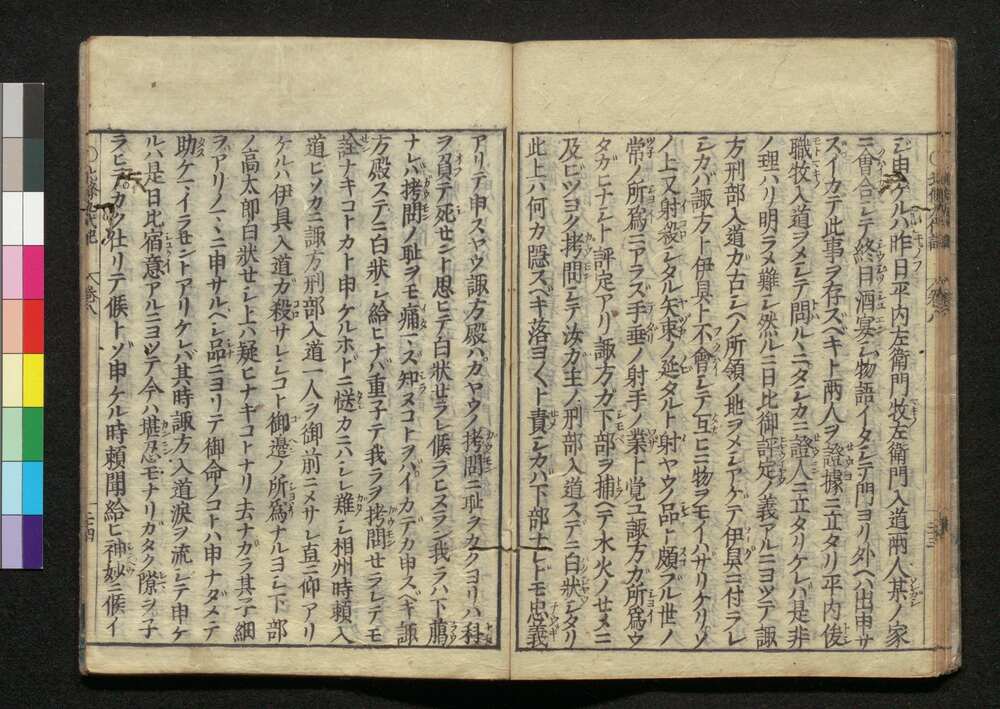 シ申シケルハ昨日平内左衛門牧左衛門入道兩人某ノ家
ニ會合シテ終日酒宴シ物語イタシテ門ヨリ外ヘ出申サ
ズイカデ此事ヲ存スベキト兩人ヲ證據ニ立タリ平内俊
職牧入道ヲメシテ問ルヽニタシカニ證人ニ立タリケレバ是非
ノ理ハリ明ラメ難シ然ルニ日比御評定ノ義アルニヨツテ諏
方刑部入道ガ古シヘノ所領ノ地ヲメシアゲテ伊具ニ付ラレ
シカバ諏方ト伊具ト不會シテ互ヒニ物ヲモイハザリケリソ
ノ上又射殺シタル矢束ノ延タルト射ヤウノ品ト頗ブル世ノ
常ノ所爲ニアラズ手垂ノ射手ノ業ト覚ユ諏方ガ所爲ウ
タガヒナシト評定アリ諏方ガ下部ヲ捕ヘテ水火ノセメニ
及ビツヨク拷問シテ汝ガ主ノ刑部入道ステニ白狀シタリ
此上ハ何カ隱スベキ落ヨ〱ト責シカバ下部ナレドモ忠義
アリテ申スヤウ諏方殿ハカヤウノ拷問ニ耻ヲカクヨリハ科
ヲ負テ死セント思ヒテ白狀セラレ候ラヒスラン我ラハ下﨟
ナレバ拷問ノ耻ヲモ痛マズ知ヌコトヲバイカデカ申スベキ諏
方殿ステニ白狀シ給ヒナバ重子テ我ラヲ拷問セラレテモ
詮ナキコトカト申ケルホドニ慥カニハシレ難シ相州時頼入
道ヒソカニ諏方刑部入道一人ヲ御前ニメサレ直ニ仰アリ
ケルハ伊具入道ガ殺サレシコト御邊ノ所爲ナルヨシ下部
ノ高太郎白狀セシ上ハ疑ヒナキコトナリ去ナガラ其子細
ヲアリノマヽニ申サルベシ品ニヨリテ御命ノコトハ申ナダメテ
助ケマイラセントアリケレバ其時諏方入道涙ヲ流シテ申ケ
ルハ是日比宿意アルニヨツテ今ハ堪忍モナリガタク隙ヲ子
ラヒテカク仕リテ候トゾ申ケル時頼聞給ヒ神妙ニ候イ